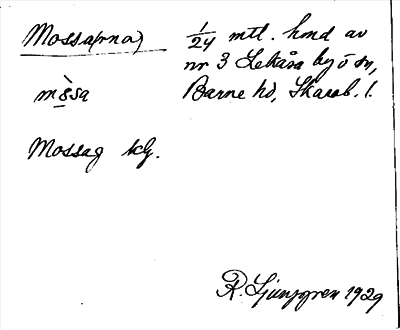 Mossa(rna)
1/24 mtl. hmd av
nr 3 Lekåsa by o sn,
mòsa
Barne hd, Skarab. l.
Mossag kg.
R. Ljunggren 1929